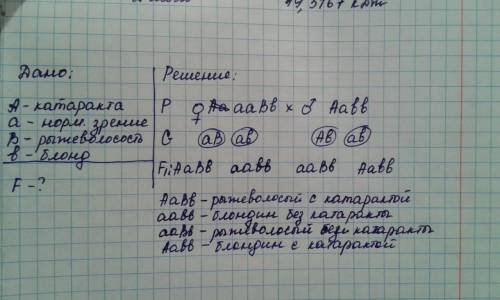 19,3767 кДж
Дано:
Решение:
А - катаракта
а - норм. зрение
В - рыжеволосость
в - блонд
F - ?
P ♀ Аа ааВв × ♂ Аавв
G аВ ав Ав ав
F₁: АаВв аавв ааВв Аавв
АаВв - рыжеволосый с катарактой
аавв - блондин без катаракты
ааВв - рыжеволосый без катаракты
Аавв - блондин с катарактой